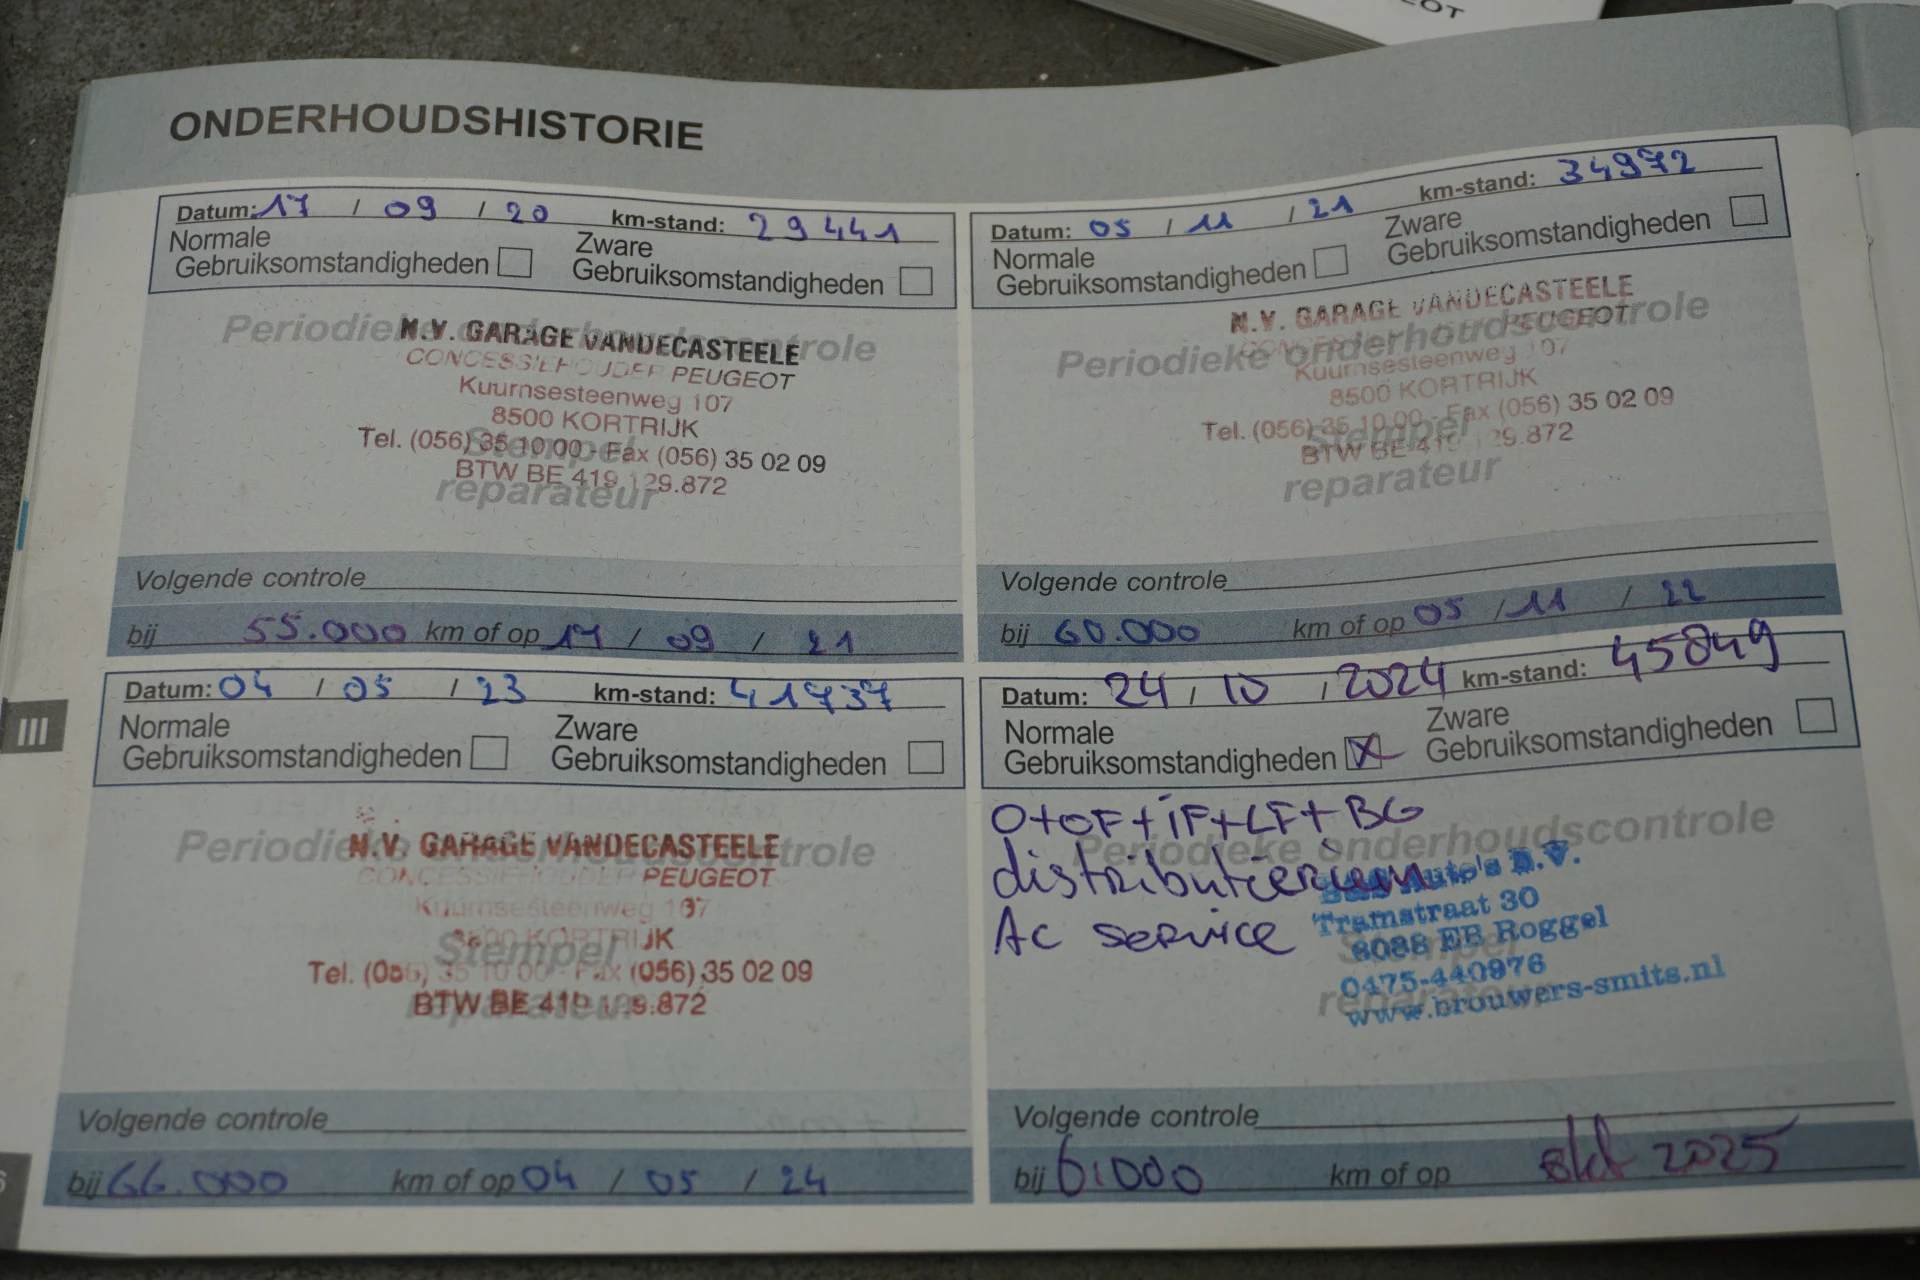 OT
ONDERHOUDSHISTORIE
Datum: 17 / 09 / 20 km-stand: 29441
Normale Gebruiksomstandigheden Zware Gebruiksomstandigheden
Periodieke onderhoudscontrole
N.V. GARAGE VANDECASTEELE
CONCESSIEHOUDER PEUGEOT
Kuurnsesteenweg 107
8500 KORTRIJK
Tel. (056) 35 10 00 - Fax (056) 35 02 09
Stempel
BTW BE 419.129.872
reparateur
Volgende controle
bij 55.000 km of op 17 / 09 / 21
Datum: 05 / 11 / 21 km-stand: 34972
Normale Gebruiksomstandigheden Zware Gebruiksomstandigheden
N.V. GARAGE VANDECASTEELE
CONCESSIEHOUDER PEUGEOT
Periodieke onderhoudscontrole
Kuurnsesteenweg 107
8500 KORTRIJK
Tel. (056) 35 10 00 - Fax (056) 35 02 09
Stempel
BTW BE 419.129.872
reparateur
Volgende controle
bij 60.000 km of op 05 / 11 / 22
III
Datum: 04 / 05 / 23 km-stand: 41737
Normale Gebruiksomstandigheden Zware Gebruiksomstandigheden
Periodieke onderhoudscontrole
N.V. GARAGE VANDECASTEELE
CONCESSIEHOUDER PEUGEOT
Kuurnsesteenweg 107
8500 KORTRIJK
Stempel
Tel. (056) 35 10 00 - Fax (056) 35 02 09
BTW BE 419.129.872
reparateur
Volgende controle
bij 66.000 km of op 04 / 05 / 24
Datum: 24 / 10 / 2024 km-stand: 45849
Normale Gebruiksomstandigheden X Zware Gebruiksomstandigheden
O+OF+iF+LF+BG
Periodieke onderhoudscontrole
distributieriem
Auto's B.V.
Ac service
Tramstraat 30
6088 EB Roggel
Stempel
0475-440976
reparateur
www.brouwers-smits.nl
Volgende controle
bij 61000 km of op okt 2025